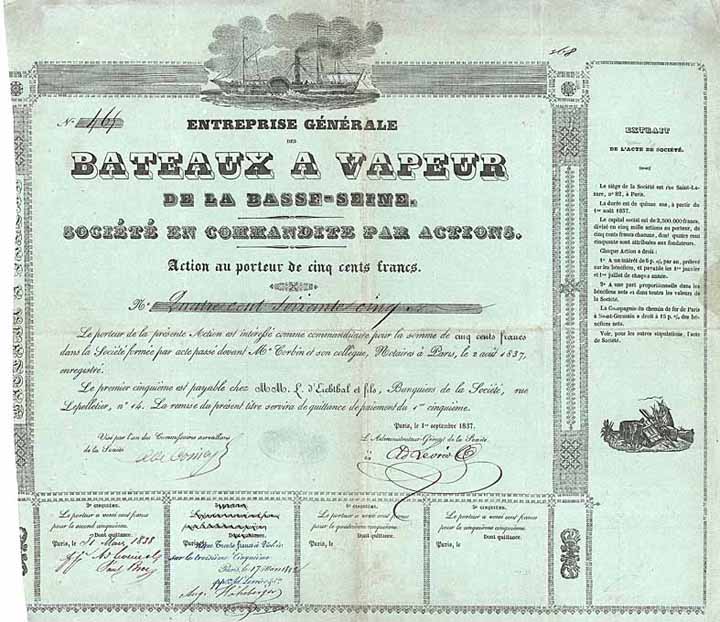 268
N. 465
ENTREPRISE GÉNÉRALE
DES
BATEAUX A VAPEUR
DE LA BASSE-SEINE.
SOCIÉTÉ EN COMMANDITE PAR ACTIONS.
Action au porteur de cinq cents francs.
N. Quatre cent soixante cinq
Le porteur de la présente Action est intéressé comme commanditaire pour la somme de cinq cents francs
dans la Société formée par acte passé devant Me Corbin et son collègue, Notaires à Paris, le 2 août 1837,
enregistré.
Le premier cinquième est payable chez MM. L. d'Eichthal et fils, Banquiers de la Société, rue
Lepelletier, n° 14. La remise du présent titre servira de quittance de paiement du 1er cinquième.
Paris, le 1er septembre 1837.
Visé par l'un des Commissaires surveillans
de la Société
L'Administrateur-Gérant de la Société
EXTRAIT
DE L'ACTE DE SOCIÉTÉ.
Le siège de la Société est rue Saint-La-
zare, n° 82, à Paris.
La durée est de quinze ans, à partir du
1er août 1837.
Le capital social est de 2,500,000 francs,
divisé en cinq mille actions au porteur, de
cinq cents francs chacune, dont quatre cent
cinquante sont attribuées aux fondateurs.
Chaque Action a droit :
1° A un intérêt de 6 p. % par an, prélevé
sur les bénéfices, et payable les 1er janvier
et 1er juillet de chaque année.
2° A une part proportionnelle dans les
bénéfices nets et dans toutes les valeurs de
la Société.
La Compagnie du chemin de fer de Paris
à Saint-Germain a droit à 15 p. % des bé-
néfices nets.
Voir, pour les autres stipulations, l'acte
de Société.
2e cinquième.
Le porteur a versé cent francs
pour le second cinquième.
Dont quittance.
Paris, le 31 Mars 1838
Dont quittance.
sur le troisième Cinquième
Paris, le 17 Mars
4e cinquième.
Le porteur a versé cent francs
pour le quatrième cinquième.
Dont quittance.
Paris, le
5e cinquième.
Le porteur a versé cent francs
pour le cinquième cinquième.
Dont quittance.
Paris, le